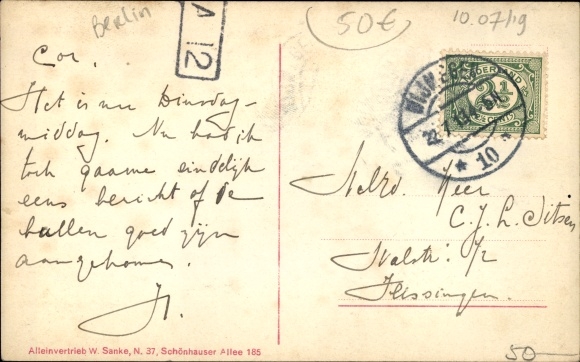 Berlin
A 12
50€
10.07/19
Cor,
Het is nu Dinsdag-
middag. Nu had ik
toch gaarne eindelijk
eens bericht of de
ballen goed zijn
aangekomen.
H.
NEDERLAND
2½
CENT
NIJM
* 10 *
Heer
C. J. L.
Walstr:
Vlissingen.
Alleinvertrieb W. Sanke, N. 37, Schönhauser Allee 185
50—